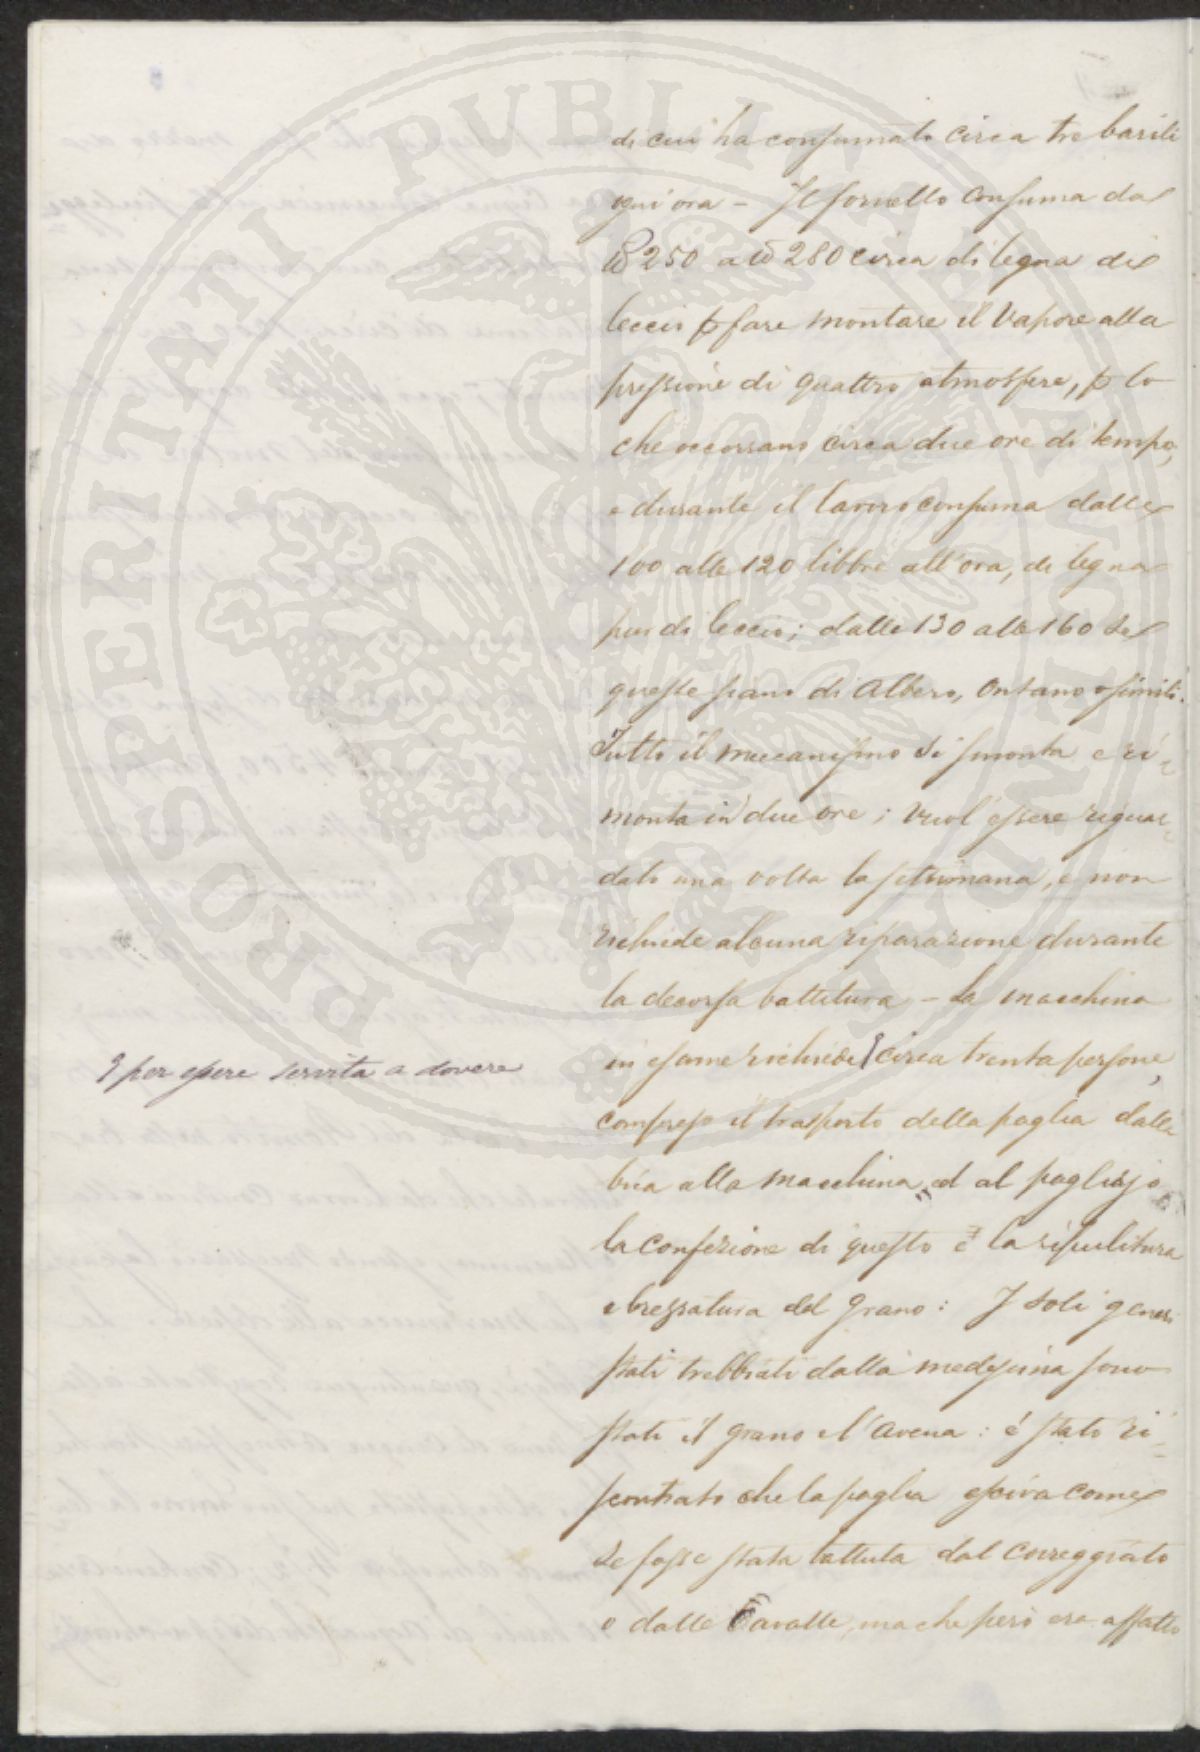 di cui ha consumato circa tre barili
ogni ora – Il fornello consuma da
℔ 250 a ℔ 280 circa di legna di
leccio p fare montare il Vapore alla
pressione di quattro atmosfere, p lo
che occorrano circa due ore di tempo,
e durante il lavoro consuma dalle
100 alle 120 libbre all'ora, di legna
pur di leccio; dalle 130 alle 160 se
queste siano di Albero, Ontano o simili.
Tutto il meccanismo si smonta e ri=
monta in due ore; vuol'essere riguar=
dato una volta la settimana, e non
richiede alcuna riparazione durante
la decorsa battitura – La macchina
in esame richiede circa trenta persone,
compreso il trasporto della paglia dalla
bica alla macchina, ed al pagliajo
la confezione di questo e la ripulitura
e brezzatura del Grano: I soli generi
stati trebbiati dalla medesima sono
stati il grano e l'avena: è stato ri=
scontrato che la paglia esciva come
se fosse stata battuta dal Correggiato
o dalle Cavalle, ma che però era affatto
per essere servita a dovere
PROSPERITATI PUBLICAE